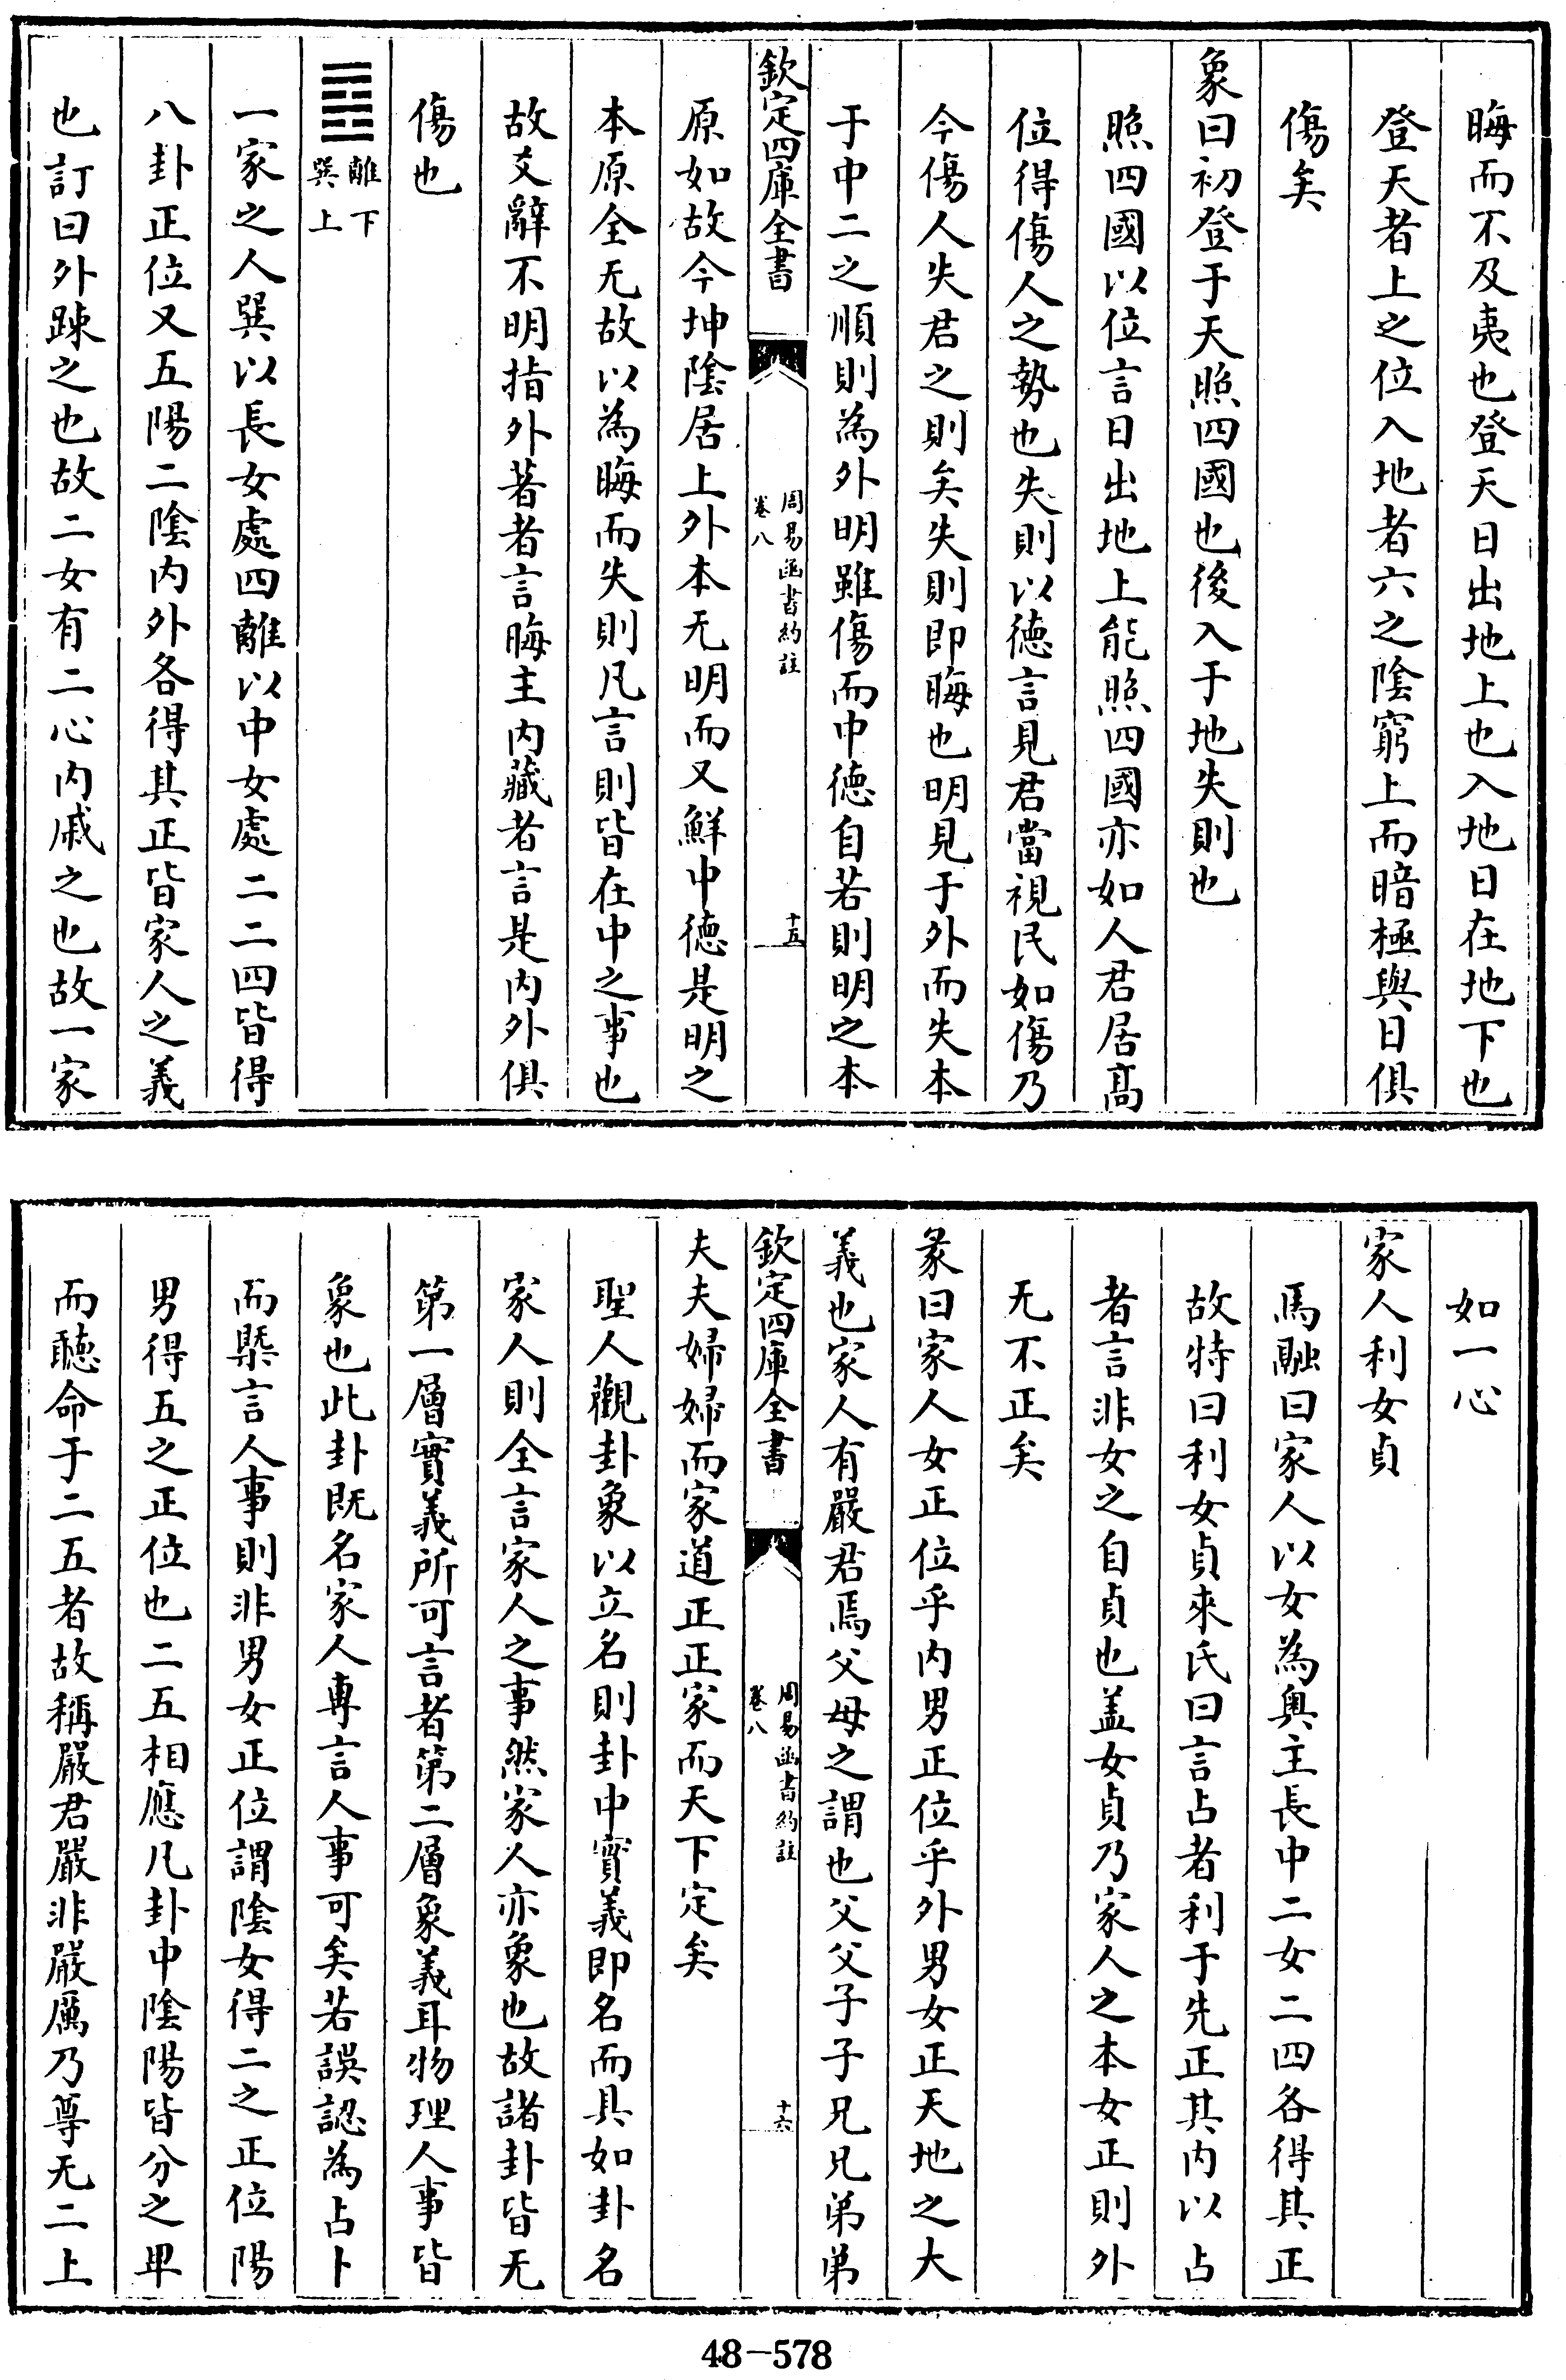 晦而不及夷也登天日出地上也入地日在地下也
登天者上之位入地者六之陰窮上而暗極與日俱
傷矣
象曰初登于天照四國也後入于地失則也
照四國以位言日出地上能照四國亦如人君居高
位得傷人之勢也失則以德言見君當視民如傷乃
今傷人失君之則矣失則即晦也明見于外而失本
于中二之順則為外明雖傷而中德自若則明之本
欽定四庫全書
周易函書約註
卷八
十五
原如故今坤陰居上外本无明而又鮮中德是明之
本原全无故以為晦而失則凡言則皆在中之事也
故爻辭不明指外著者言晦主內藏者言是內外俱
傷也
䷤
離下
巽上
一家之人巽以長女處四離以中女處二二四皆得
八卦正位又五陽二陰內外各得其正皆家人之義
也訂曰外踈之也故二女有二心內戚之也故一家
如一心
家人利女貞
馬融曰家人以女為奧主長中二女二四各得其正
故特曰利女貞來氏曰言占者利于先正其內以占
者言非女之自貞也盖女貞乃家人之本女正則外
无不正矣
彖曰家人女正位乎內男正位乎外男女正天地之大
義也家人有嚴君焉父母之謂也父父子子兄兄弟弟
欽定四庫全書
周易函書約註
卷八
十六
夫夫婦婦而家道正正家而天下定矣
聖人觀卦象以立名則卦中實義即名而具如卦名
家人則全言家人之事然家人亦象也故諸卦皆无
第一層實義所可言者第二層象義耳物理人事皆
象也此卦既名家人專言人事可矣若誤認為占卜
而槩言人事則非男女正位謂陰女得二之正位陽
男得五之正位也二五相應凡卦中陰陽皆分之卑
而聽命于二五者故稱嚴君嚴非嚴厲乃尊无二上
48-578